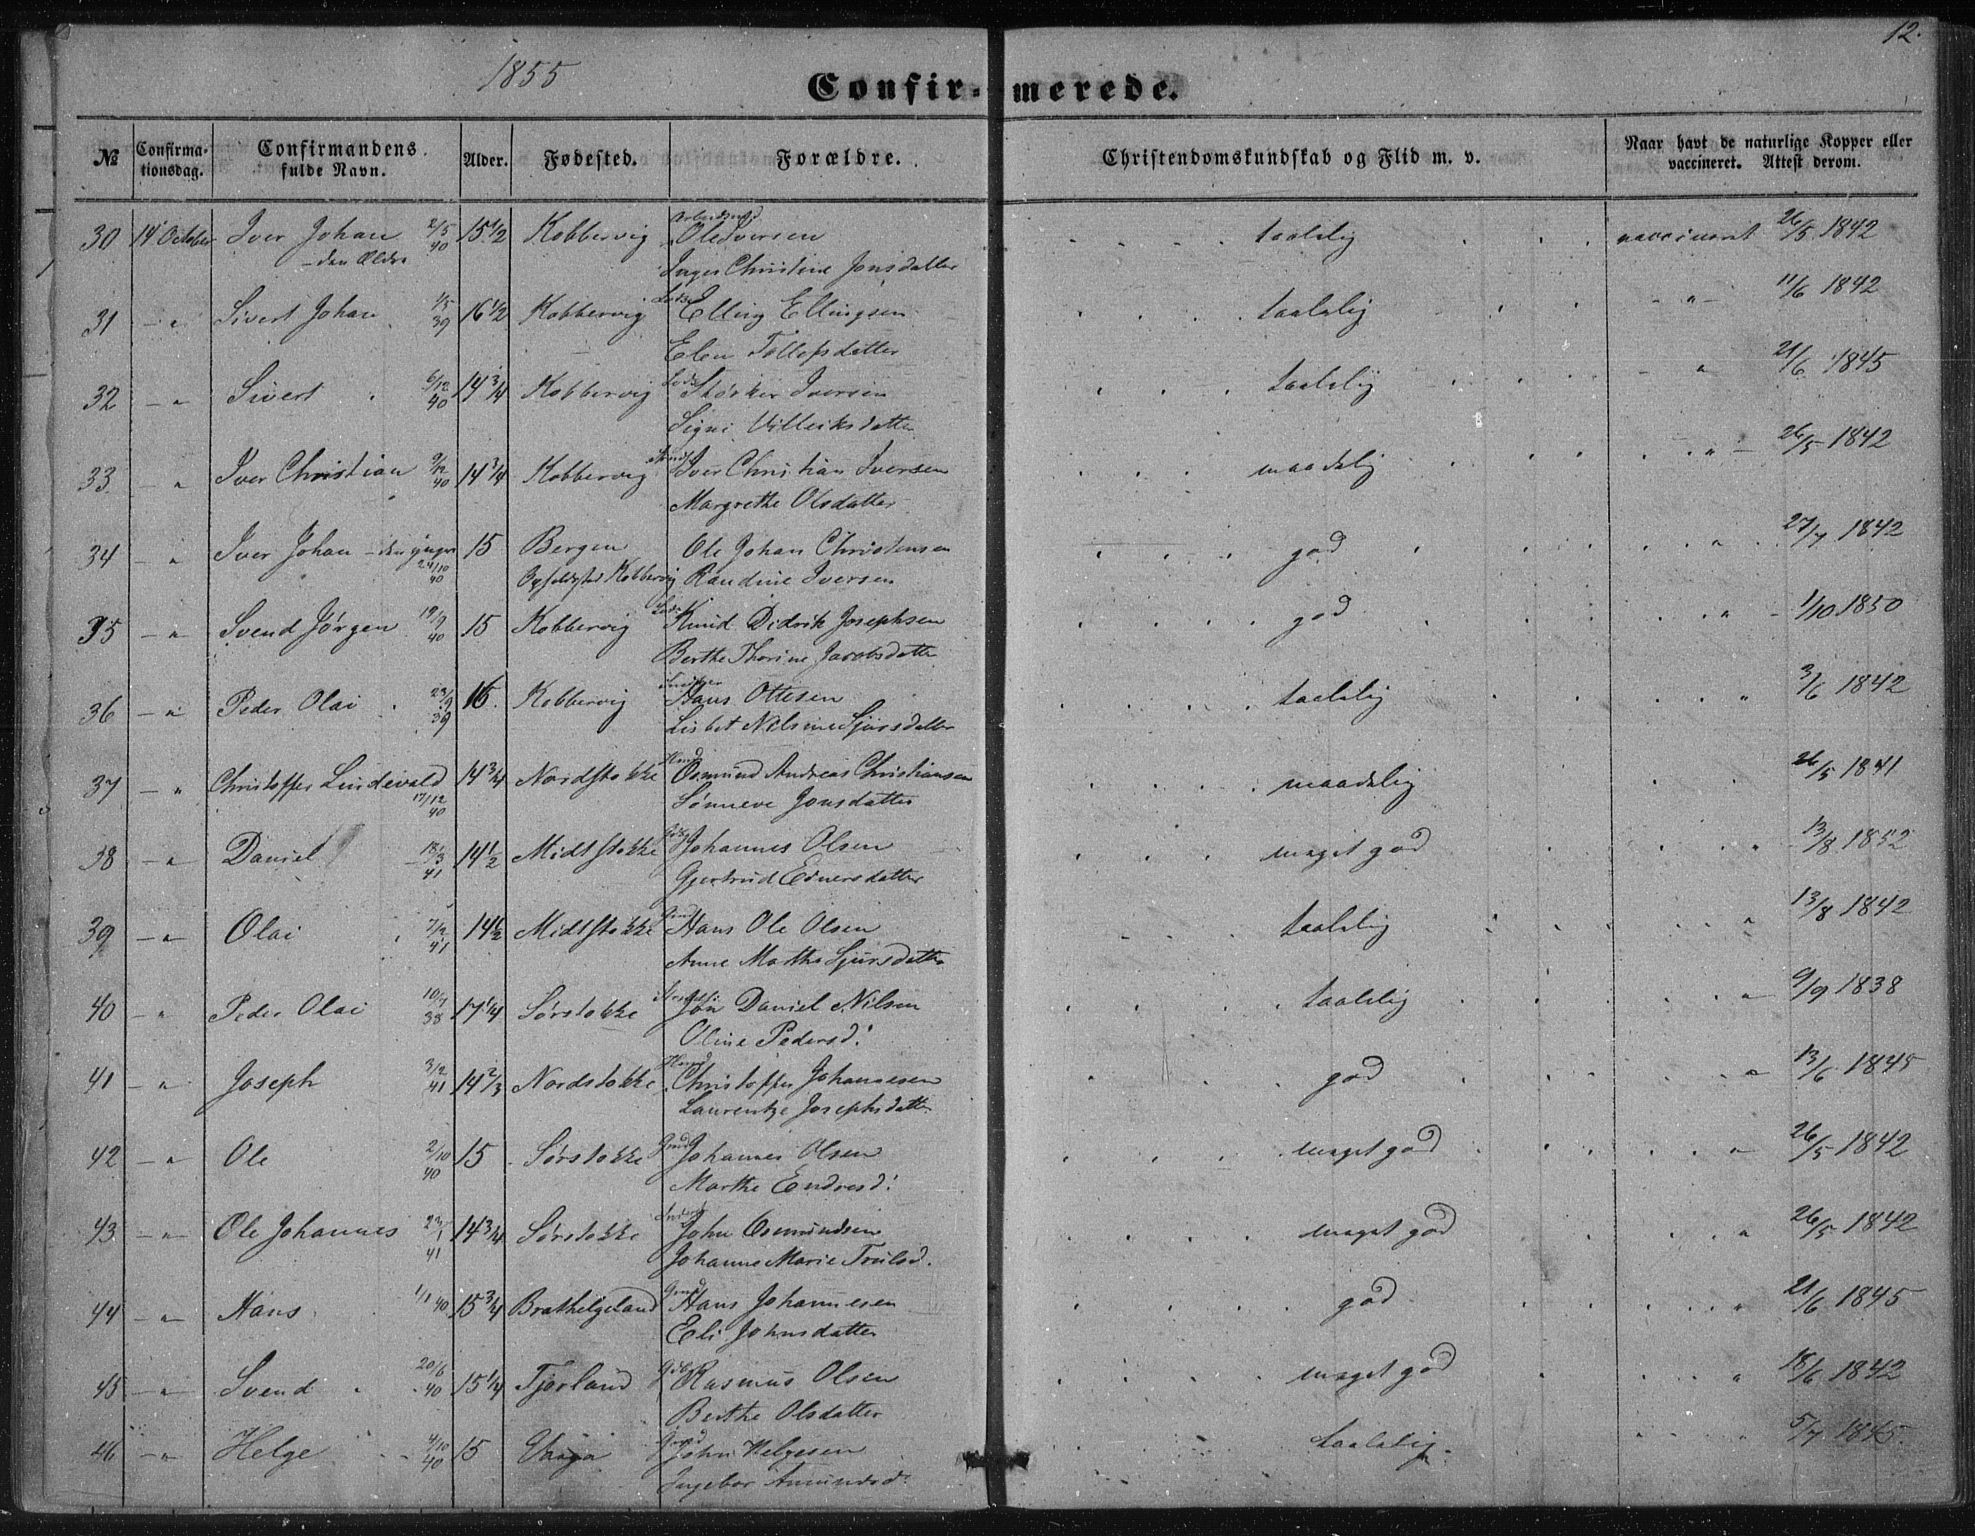 12.
1855
Confirmerede.
№ Confirmationsdag. Confirmandens fulde Navn. Alder. Fødested. Forældre. Christendomskundskab og Flid m. v. Naar havt de naturlige Kopper eller vaccineret. Attest derom.
30 14 October Iver Johan 2/5 40 15 1/2 Kobbervig Ole Iversen taalelig vaccineret 26/5 1842
den Ældre Inger Christine Jonsdatter
31 – " Sivert Johan 1/5 39 16 1/2 Kobbervig Lods Elling Ellingsen taalelig – " – 11/6 1842
Elen Tollefsdatter
32 – " Sivert 6/12 40 14 3/4 Kobbervig Lods Størker Iversen taalelig – " 21/6 1845
Signi Villeiksdatter
33 – " Iver Christian 9/12 40 14 3/4 Kobbervig Iver Christian Iversen maadelig " – 26/5 1842
Margrethe Olsdatter
34 " Iver Johan – den yngre 24/10 40 15 Bergen Ole Johan Christensen god " 27/7 1842
Opholdsted Kobbervig Randine Iversen
35 – " Svend Jørgen 19/9 40 15 Kobbervig Lods Knud Didrik Josephsen god " – 1/10 1850
Berthe Thorine Jacobsdatter
36 – " Peder Olai 23/9 39 16 Kobbervig Snidker Hans Ottesen taalelig " 3/6 1842
Lisbet Nilsine Sjursdatter
37 – " Christoffer Lindevald 17/12 40 14 3/4 Nordstokke Osmund Andreas Christiansen maadelig 26/5 1841
Sønneve Jonsdatter
38 – " Daniel 18/3 41 14 1/2 Midtstokke Johannes Olsen meget god " 13/8 1852
Gjertrud Einersdatter
39 – " Olai 7/2 41 14 1/2 Midtstokke Hans Ole Olsen taalelig " 13/8 1842
Anne Marthe Sjursdatter
40 " Peder Olai 10/7 38 17 1/4 Sørstokke Jon Daniel Nilsen taalelig " 9/9 1838
Oline Pedersd:
41 – " Joseph 3/2 41 14 2/3 Nordstokke Christoffer Johannesen god " 13/6 1845
Laurentze Josephsdatter
42 – " Ole 2/10 40 15 Sørstokke Johannes Olsen meget god " 26/5 1842
Marthe Endresd:
43 – " Ole Johannes 23/1 41 14 3/4 Sørstokke John Osmundsen meget god " 26/5 1842
Johanne Marie Trulsd.
44 – " Hans 1/1 40 15 3/4 Brathelgeland Hans Johannesen god " 21/6 1845
Eli Johnsdatter
45 – " Svend 20/6 40 15 1/4 Fjorland Rasmus Olsen meget god " 18/6 1842
Berthe Olsdatter
46 – " Helge 4/10 40 15 John Helgesen taalelig 5/7 1845
Ingebor Amundsd.